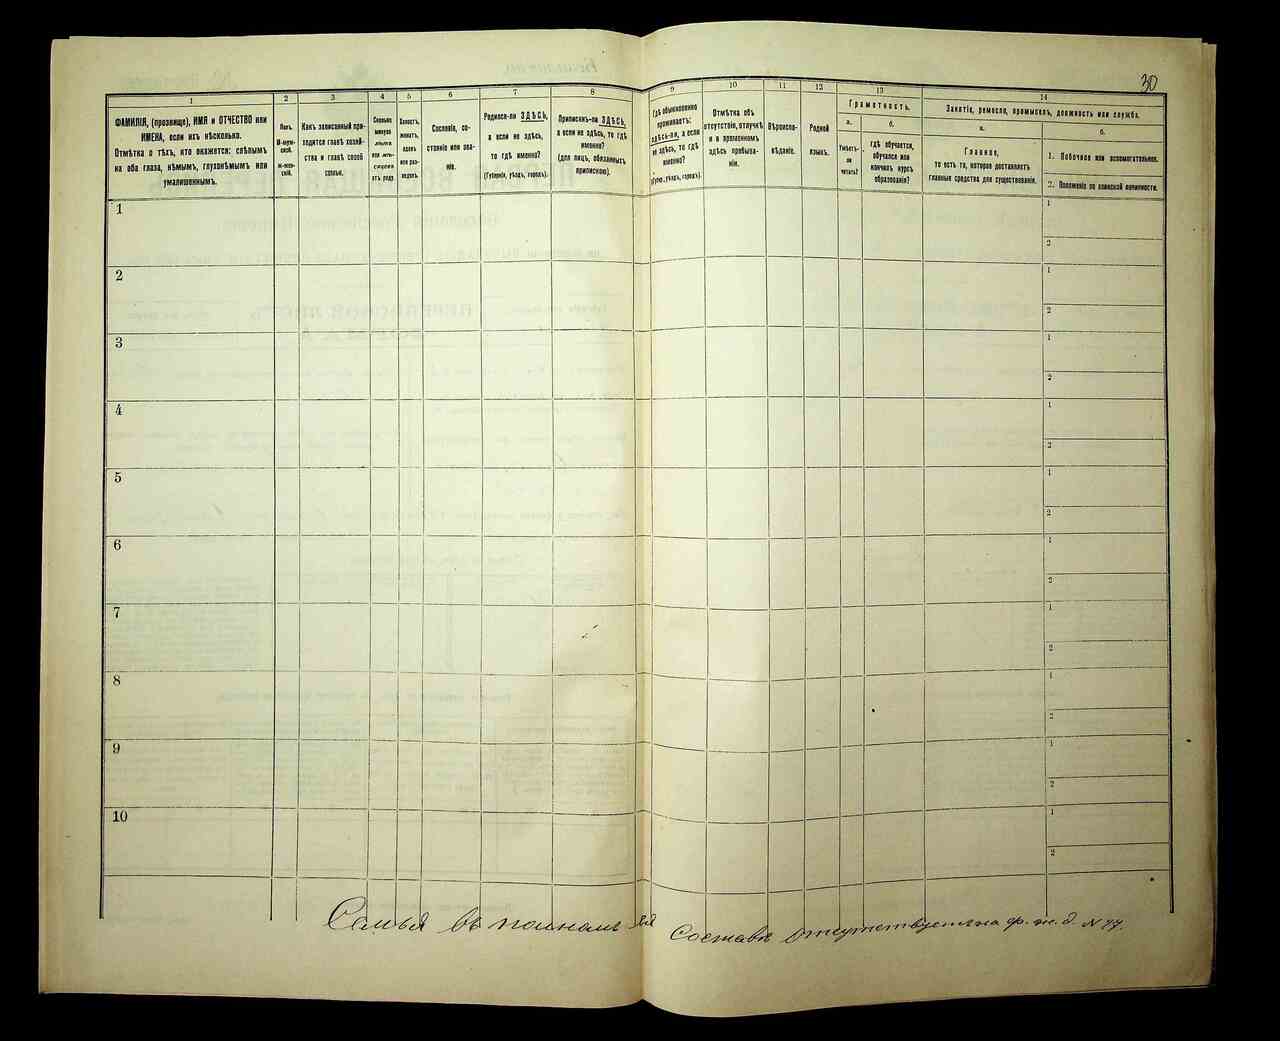 30
1
2
3
4
5
6
7
8
9
10
11
12
13
14
ФАМИЛІЯ, (прозвище), ИМЯ и ОТЧЕСТВО или
ИМЕНА, если ихъ нѣсколько.
Отмѣтка о тѣхъ, кто окажется: слѣпымъ
на оба глаза, нѣмымъ, глухонѣмымъ или
умалишеннымъ.
Полъ.
М-муж-
ской.
Ж-жен-
скій.
Какъ записанный при-
ходится главѣ хозяй-
ства и главѣ своей
семьи.
Сколько
минуло
лѣтъ
или мѣ-
сяцевъ
отъ роду.
Холостъ,
женатъ,
вдовъ
или раз-
веденъ.
Сословіе, со-
стояніе или зва-
ніе.
Родился-ли ЗДѢСЬ,
а если не здѣсь,
то гдѣ именно?
(Губернія, уѣздъ, городъ).
Приписанъ-ли ЗДѢСЬ,
а если не здѣсь, то гдѣ
именно?
(для лицъ, обязанныхъ
припискою).
Гдѣ обыкновенно
проживаетъ:
здѣсь-ли, а если
не здѣсь, то гдѣ
именно?
(Губ., уѣздъ, городъ).
Отмѣтка объ
отсутствіи, отлучкѣ
и о временномъ
здѣсь пребыва-
ніи.
Вѣроиспо-
вѣданіе.
Родной
языкъ.
Грамотность.
а.
Умѣетъ-
ли
читать?
б.
гдѣ обучается,
обучался или
кончилъ курсъ
образованія?
Занятіе, ремесло, промыселъ, должность или служба.
а.
Главное,
то есть то, которое доставляетъ
главныя средства для существованія.
б.
1. Побочное или вспомогательное.
2. Положеніе по воинской повинности.
1
1
2
2
1
2
3
1
2
4
1
2
5
1
2
6
1
2
7
1
2
8
1
2
9
1
2
10
1
2
Семья въ полномъ ея составѣ отсутствуетъ на